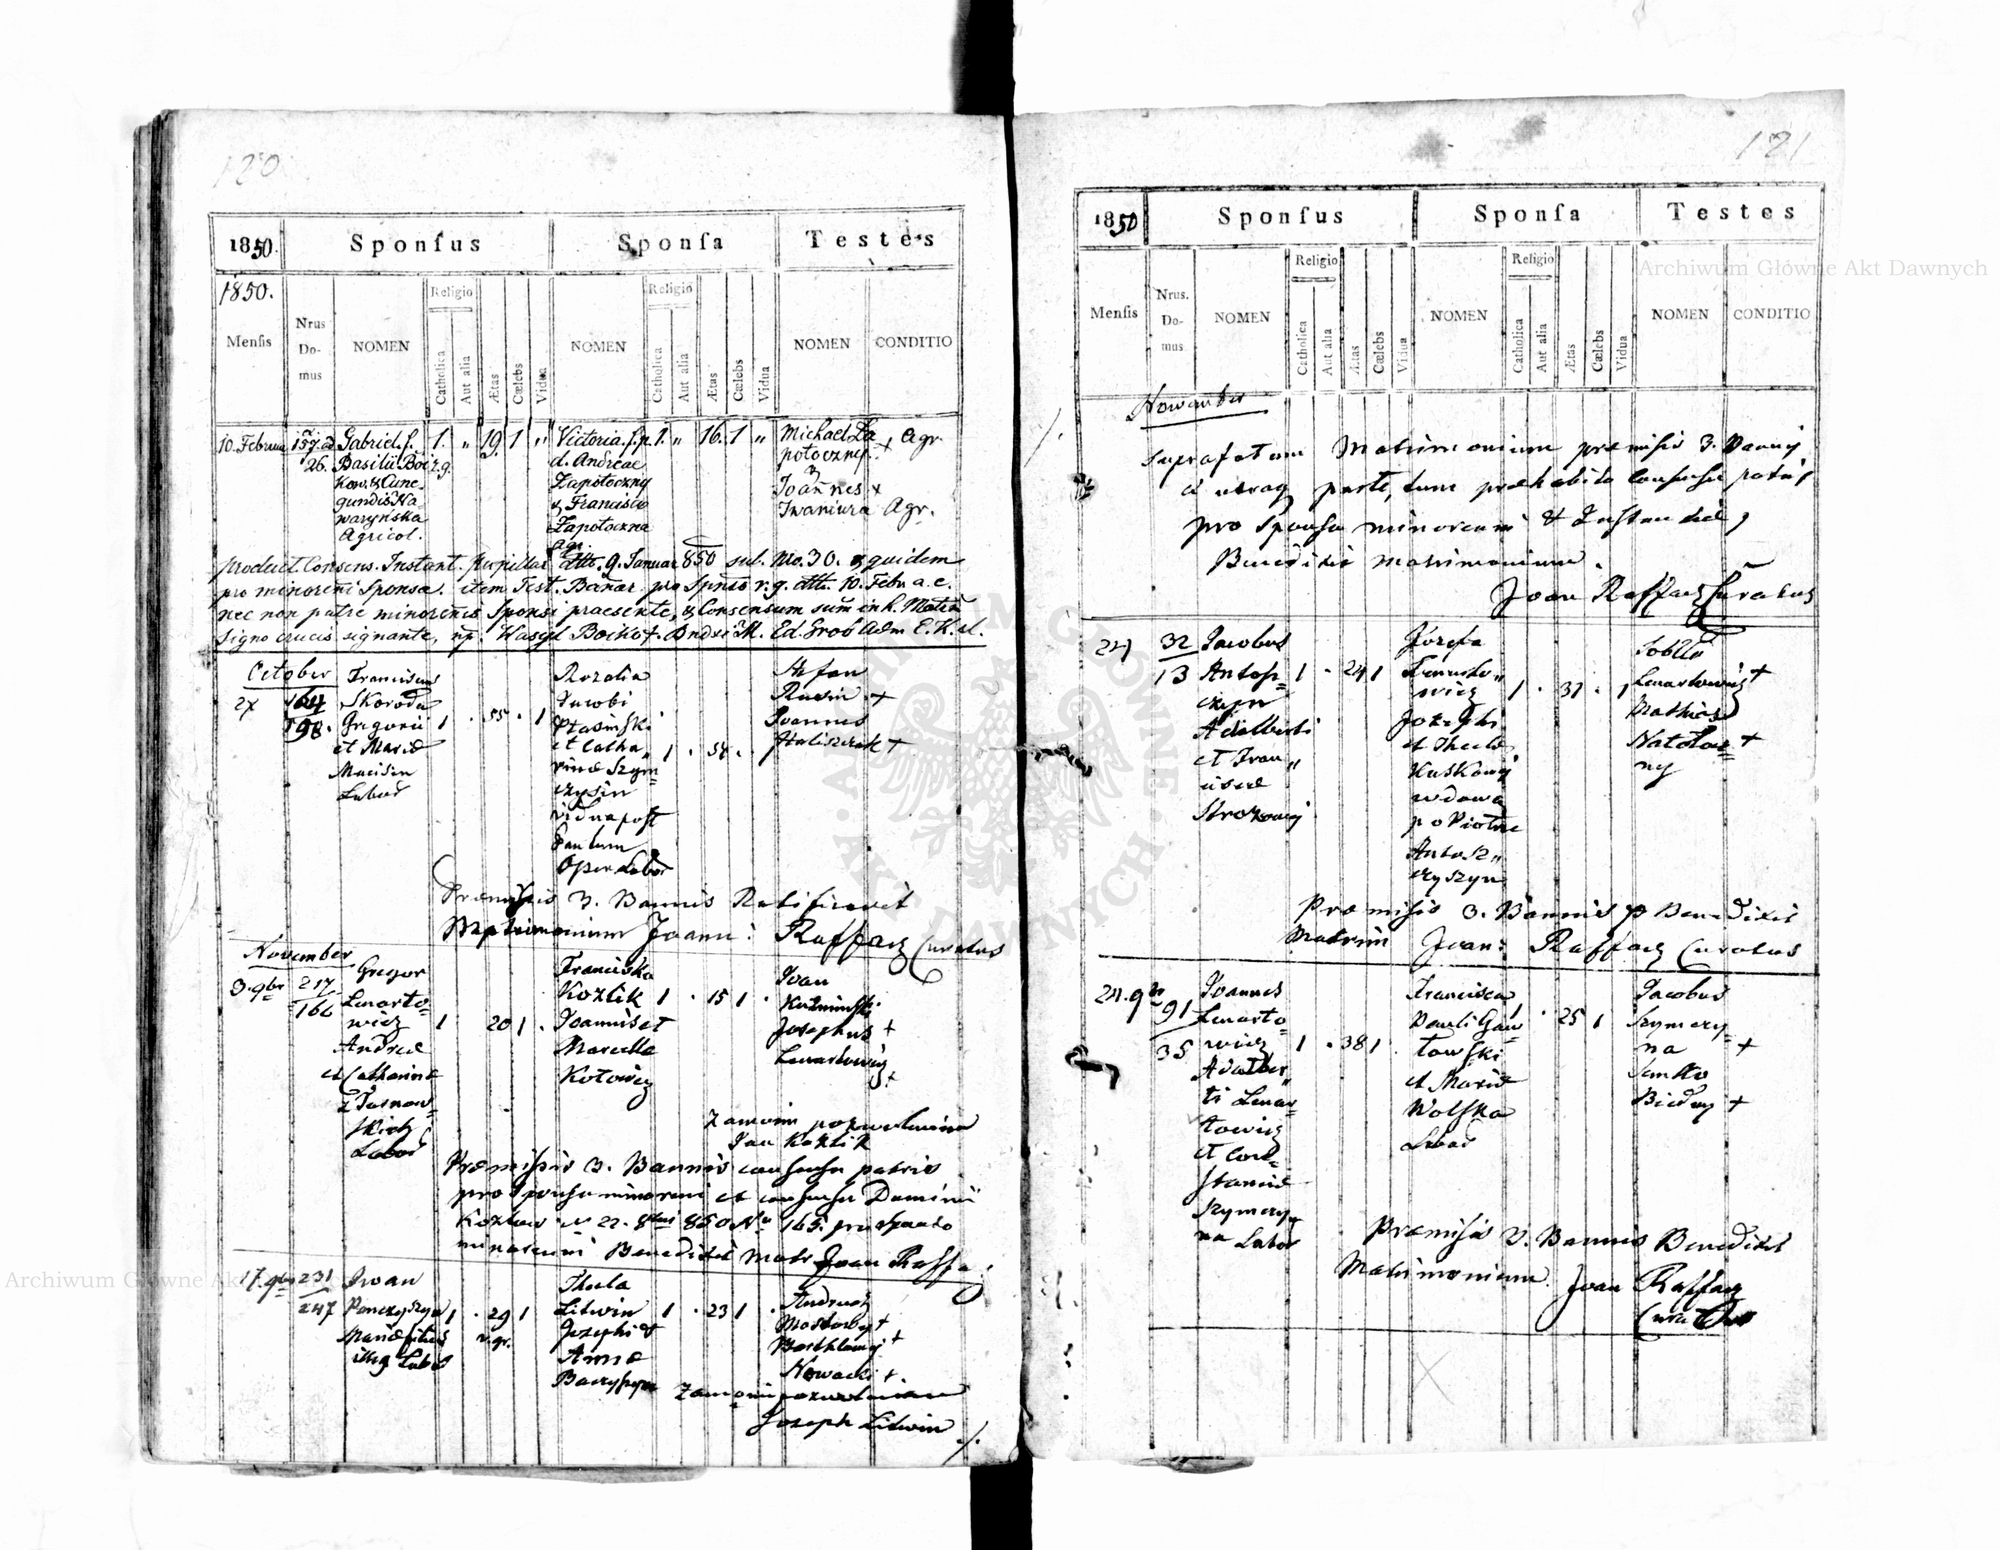 120
1850. Sponsus Sponsa Testes
1850.
Mensis Nrus Do- mus NOMEN Religio Catholica Aut alia Ætas Cœlebs Vidua NOMEN Religio Catholica Aut alia Ætas Cœlebs Vidua NOMEN CONDITIO
10. Februar 157. ad 26.
Gabriel. f.
Basilii Boi
kow. & Cune-
gundis Na-
warynska
Agricol.
1. „ 19. 1 „
r. g.
Victoria. f. p.
d. Andreae
Zapotoczny
& Francisca
Zapotoczna
Agr.
1. „ 16. 1 „
Michael Za
potoczny + Agr.
&
Joannes +
Iwaniura Agr.
product. Consens. Instant. Pupillar dtto. 9. Januar 850 sub. Nro. 30. & quidem
pro minoreñi Sponsa. item Test. Banar. pro Spnso r. g. dtto. 10. Febr. a. c.
nec non patre minoreñis Sponsi praesente, & Consensum suum in h. Matrim
signo crucis signante, np. Wasyl Boiko +. Bndxi M. Ed. Grob Adm E. K. d.
October
27 164
198.
Franciscus
Skoroda
Gregorii
et Maria
Macisin
Labor
1 . 55 . 1
Rozalia
Jacobi
Ptasinski
et Catha„
rina Szym=
czysin
vidua post
Pantum
Oper Labor
1 . 54 .
Stefan
Rusin +
Joannes
Haliszczak +
Præmissis 3. Bannis Ratificavit
Matrimonium Joann: Raffacz Curatus
November
3. 9br 217
166
Gregor
Lenarto=
wicz
Andreæ
et Catharina
z Tarnow=
skich
Labor
1 20 1 .
Franciska
Kozlik
Joannis et
Marcella
Kotowicz
1 . 15 1 .
Ivan
Kuzminski
Josephus +
Lenartowicz
+
Zamoim pozwoleniem
Jan Kozlik
Præmissis 3. Bannis consensu patris
pro Sponsa minoreni et consensu Dominii
Kozlow 22. 8bris 850 No 165. pro Sponso
minoreni Benedixit Matr Joan Raffa:
17. 9br 231
247
Iwan
Panczyszyn
Mariæ filius
illeg Labor
1 . 29 1
r. gr.
Thecla
Litwin
Josephi et
Anna
Baczyszyn
1 . 23 1 .
Andruch
Mostowy +
Barthlomy +
Nowacki +
Zamoim pozwoleniem
Joseph Litwin ./.
121
1850 Sponsus Sponsa Testes
Mensis Nrus. Do- mus NOMEN Religio Catholica Aut alia Ætas Cœlebs Vidua NOMEN Religio Catholica Aut alia Ætas Cœlebs Vidua NOMEN CONDITIO
November
./. suprafatum Matrimonium premisis 3. Bannis
a utraq parte, tum prehabito Consensu patris
pro Sponsa minoreni &
Benedixit matrimonium.
Joan Raffacz Curatus
24 32
13
Jacobus
Antosz=
czyn
Adalberti
et Fran„
cisca
1 . 24 1
Jozefa
wicz
Jozephi
et Thecla
wdowa
po Piotrze
Antosz„
czyszyn
1 . 31 . 1
Lenartowicz +
Mathias
Natolocz=
ny +
Præmisis 3. Bannis Benedixit
Matrim Joan: Raffacz Curatus
24. 9br 91
35
Joannes
Lenarto=
wicz
Adalber
ti Lenar=
towicz
et Con=
stancia
Szymczy„
na Labor
1 . 38 1
Francisca
Pauli Gaw
lowski
et Maria
Wolska
Labor
1 . 25 1
Jacobus
Szymczy=
na +
Semko
Biedny +
Præmisis 3. Bannis Benedixit
Matrimonium. Joan Raffacz
Curatus
Archiwum Główne Akt Dawnych
Archiwum Główne Akt Dawnych
ARCHIWUM GŁÓWNE AKT DAWNYCH